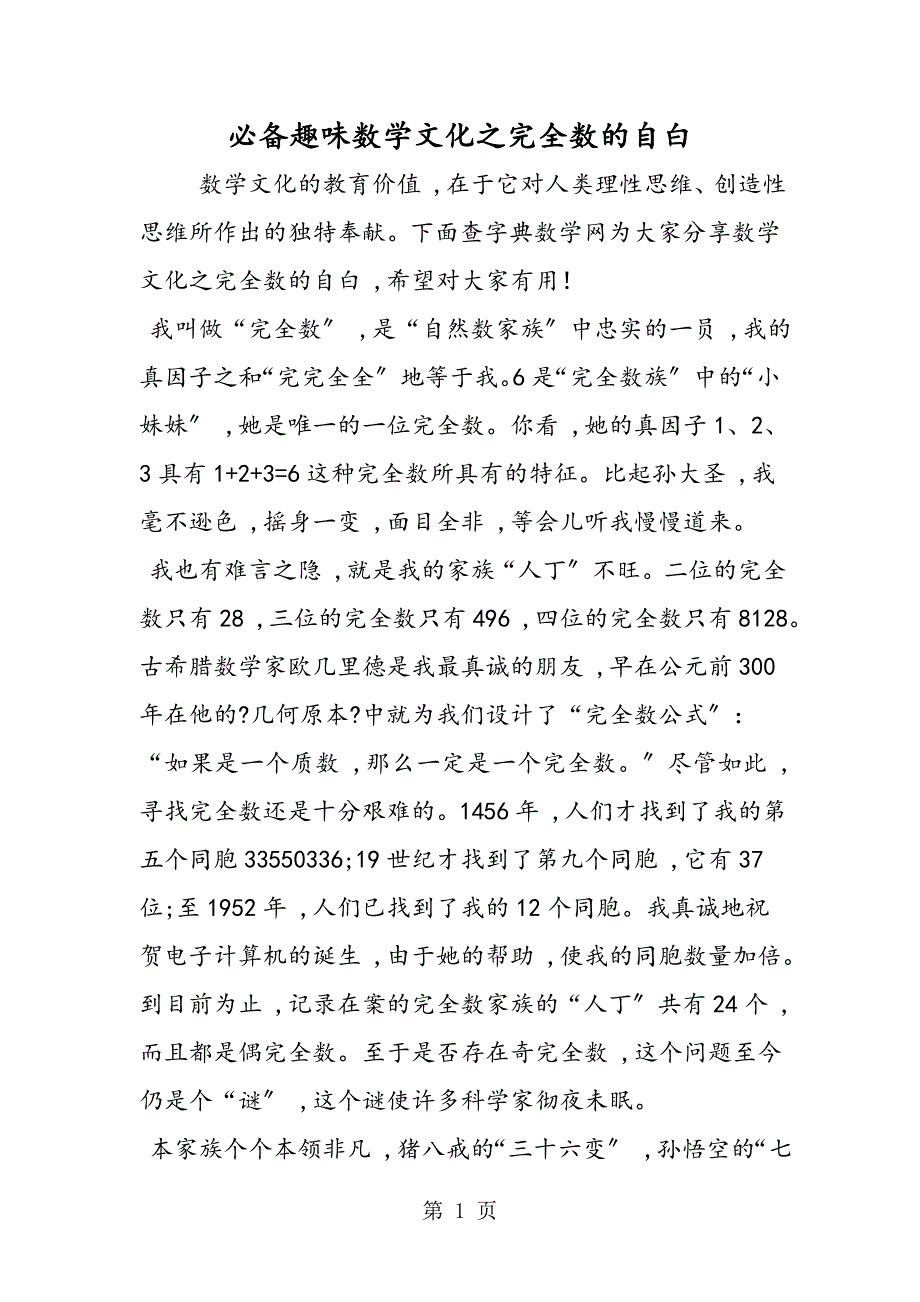 必备趣味数学文化之完全数的自白
数学文化的教育价值 ,在于它对人类理性思维、创造性
思维所作出的独特奉献。下面查字典数学网为大家分享数学
文化之完全数的自白 ,希望对大家有用!
我叫做“完全数〞 ,是“自然数家族〞中忠实的一员 ,我的
真因子之和“完完全全〞地等于我。6是“完全数族〞中的“小
妹妹〞 ,她是唯一的一位完全数。你看 ,她的真因子1、2、
3具有1+2+3=6这种完全数所具有的特征。比起孙大圣 ,我
毫不逊色 ,摇身一变 ,面目全非 ,等会儿听我慢慢道来。
我也有难言之隐 ,就是我的家族“人丁〞不旺。二位的完全
数只有28 ,三位的完全数只有496 ,四位的完全数只有8128。
古希腊数学家欧几里德是我最真诚的朋友 ,早在公元前300
年在他的?几何原本?中就为我们设计了“完全数公式〞:
“如果是一个质数 ,那么一定是一个完全数。〞尽管如此 ,
寻找完全数还是十分艰难的。1456年 ,人们才找到了我的第
五个同胞33550336;19世纪才找到了第九个同胞 ,它有37
位;至1952年 ,人们已找到了我的12个同胞。我真诚地祝
贺电子计算机的诞生 ,由于她的帮助 ,使我的同胞数量加倍。
到目前为止 ,记录在案的完全数家族的“人丁〞共有24个 ,
而且都是偶完全数。至于是否存在奇完全数 ,这个问题至今
仍是个“谜〞 ,这个谜使许多科学家彻夜未眠。
本家族个个本领非凡 ,猪八戒的“三十六变〞 ,孙悟空的“七
第 1 页